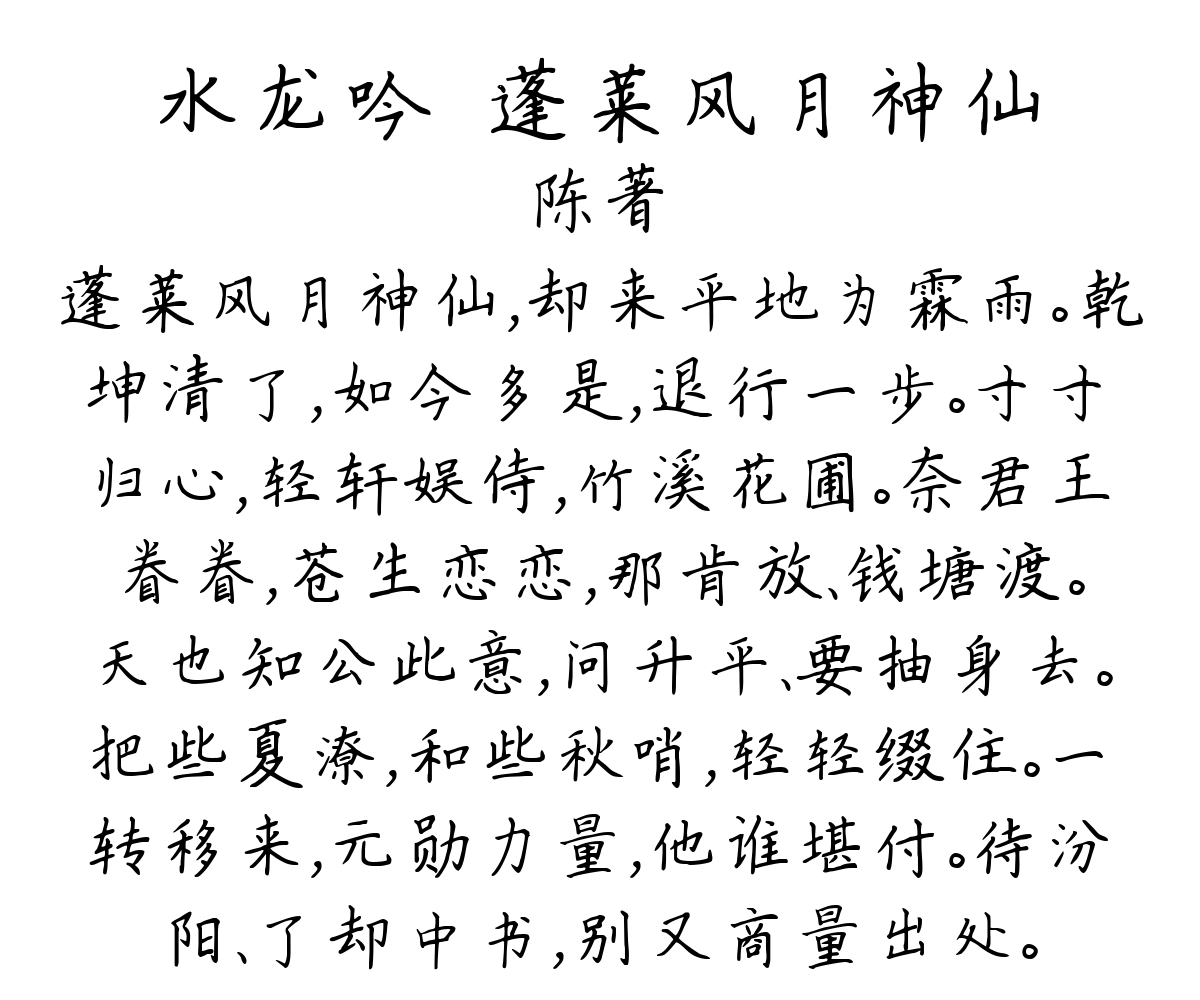 水龙吟 蓬莱风月神仙
陈著
蓬莱风月神仙,却来平地为霖雨。乾
坤清了,如今多是,退行一步。寸寸
归心,轻轩娱侍,竹溪花圃。奈君王
眷眷,苍生恋恋,那肯放、钱塘渡。
天也知公此意,问升平、要抽身去。
把些夏潦,和些秋哨,轻轻缀住。一
转移来,元勋力量,他谁堪付。待汾
阳、了却中书,别又商量出处。